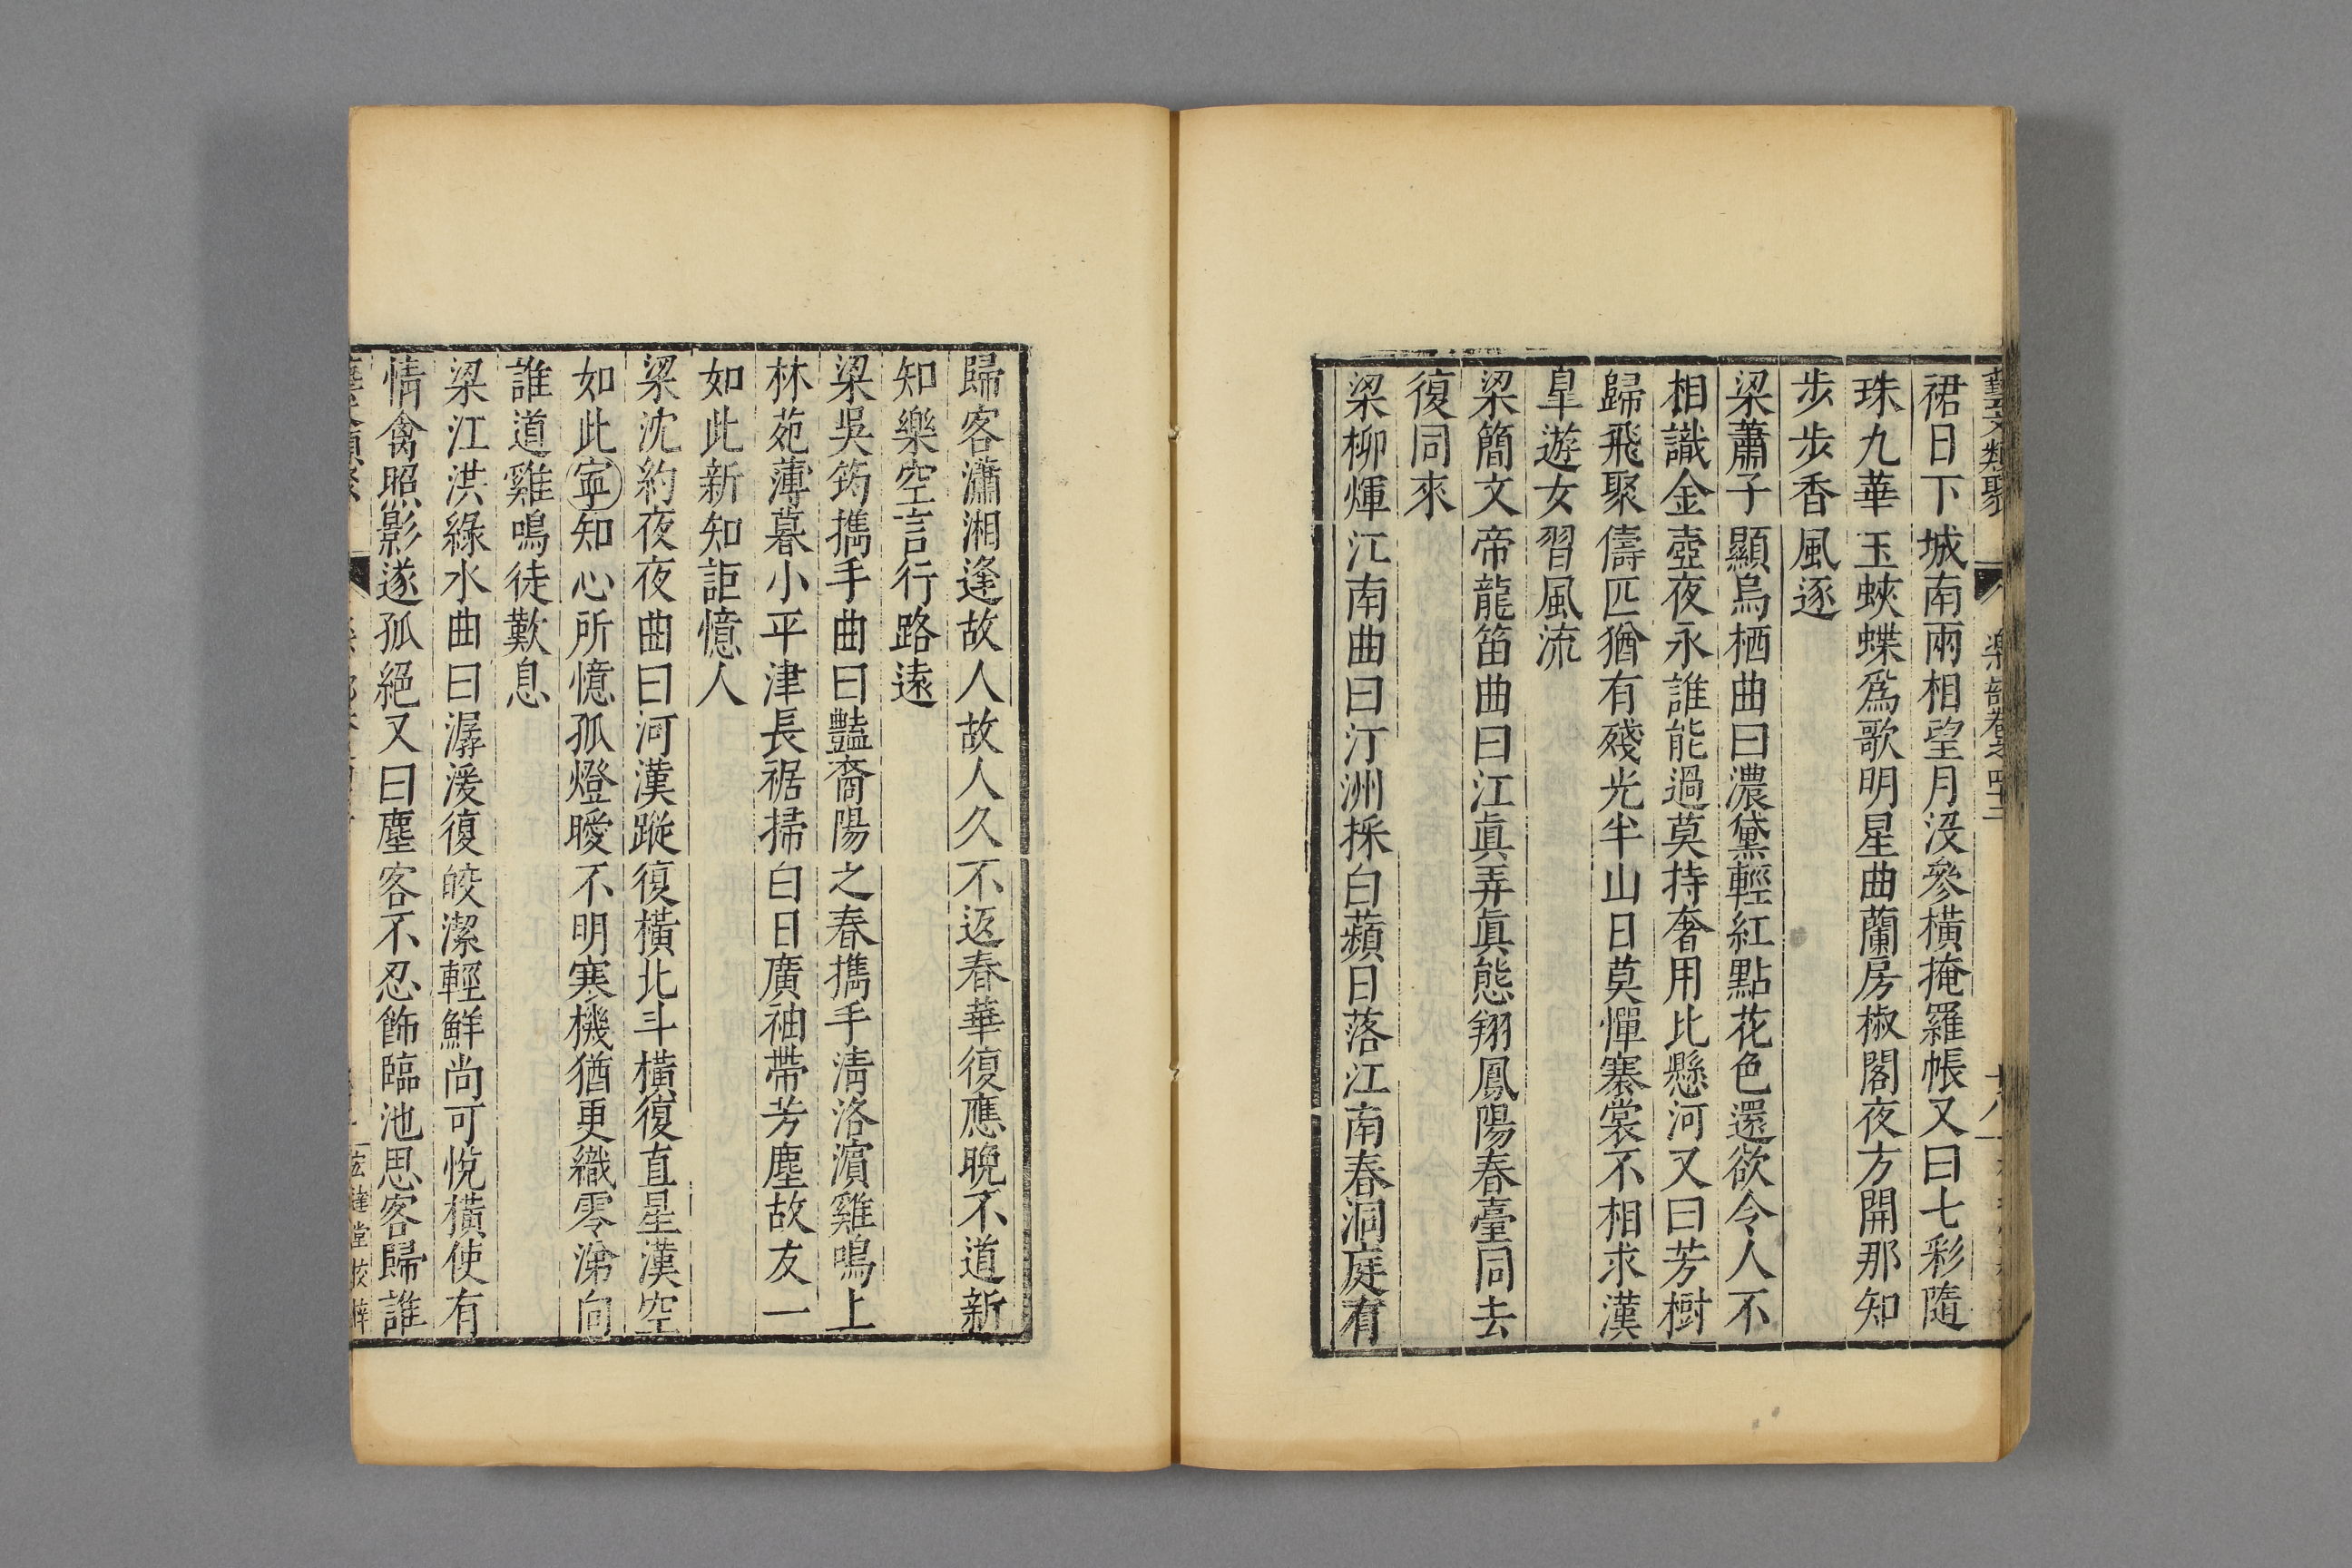 藝文類聚 樂部卷之四十二
裙日下城南兩相望月沒參橫掩羅帳又曰七彩隨
珠九華玉蛺蝶爲歌明星曲蘭房椒閣夜方開那知
步步香風逐
梁蕭子顯烏栖曲曰濃黛輕紅點花色還欲令人不
相識金壺夜永誰能過莫持奢用比懸河又曰芳樹
歸飛聚儔匹猶有殘光半山日莫憚褰裳不相求漢
皐遊女習風流
梁簡文帝龍笛曲曰江眞弄眞態翔鳳陽春臺同去
復同來
梁柳煇江南曲曰汀洲採白蘋日落江南春洞庭有
歸客瀟湘逢故人故人久不返春華復應晚不道新
知樂空言行路遠
梁吳筠擕手曲曰豔裔陽之春擕手清洛濵雞鳴上
林苑薄暮小平津長裾掃白日廣袖帶芳塵故友一
如此新知詎憶人
梁沈約夜夜曲曰河漢蹤復橫北斗橫復直星漢空
如此寧知心所憶孤燈曖不明寒機猶更織零涕向
誰道雞鳴徒歎息
梁江洪綠水曲曰潺湲復皎潔輕鮮尚可悅橫使有
情禽照影遂孤絕又曰塵客不忍飾臨池思客歸誰
宏達堂校梓